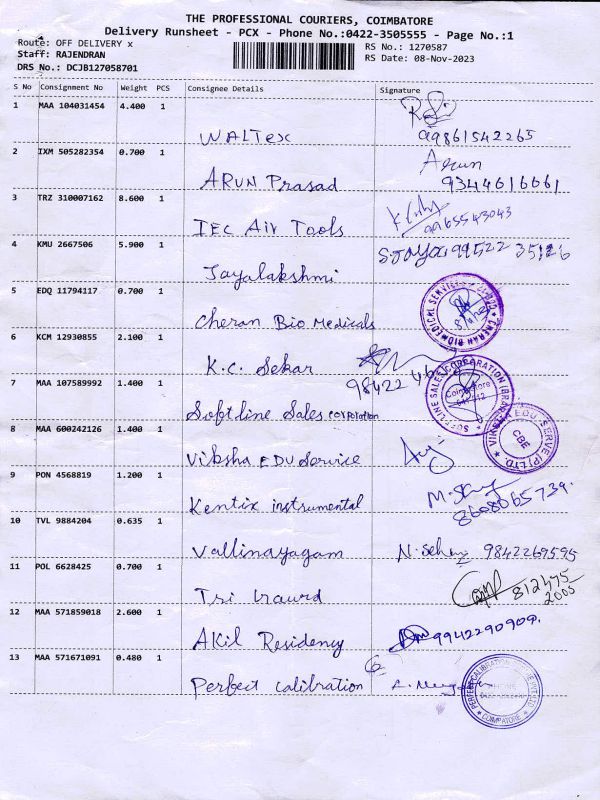 THE PROFESSIONAL COURIERS, COIMBATORE
Delivery Runsheet - PCX - Phone No.:0422-3505555 - Page No.:1
Route: OFF DELIVERY x
RS No.: 1270587
Staff: RAJENDRAN
RS Date: 08-Nov-2023
DRS No.: DCJB127058701
S No Consignment No Weight PCS Consignee Details Signature
1 MAA 104031454 4.400 1
WALTEX 9986154 2265
2 IXM 505282354 0.700 1 Arun
ARUN Prasad 9344616661
3 TRZ 310007162 8.600 1
IEC Air Tools 9965543043
4 KMU 2667506 5.900 1 S.JAYA 99522 35126
Jayalakshmi
5 EDQ 11794117 0.700 1
Cheran Bio Medicals
CHERAN BIOMEDICAL SERVICES
6 KCM 12930855 2.100 1
K.C. Sekar 98422
7 MAA 107589992 1.400 1
SOFTLINE SALES CORPORATION
Coimbatore
Softline Sales corporation
8 MAA 600242126 1.400 1
VIKSHA EDU SERVE (P) LTD.
CBE
Viksha EDU Service
9 PON 4568819 1.200 1
Kentix instrumental 8608065739.
10 TVL 9884204 0.635 1
Vallinayagam 9842269595
11 POL 6628425 0.700 1
812475
2005
Tri
12 MAA 571859018 2.600 1
AKil Residency 9942290909.
13 MAA 571671091 0.480 1
Perfect calibration
PERFECT CALIBRATION
COIMBATORE